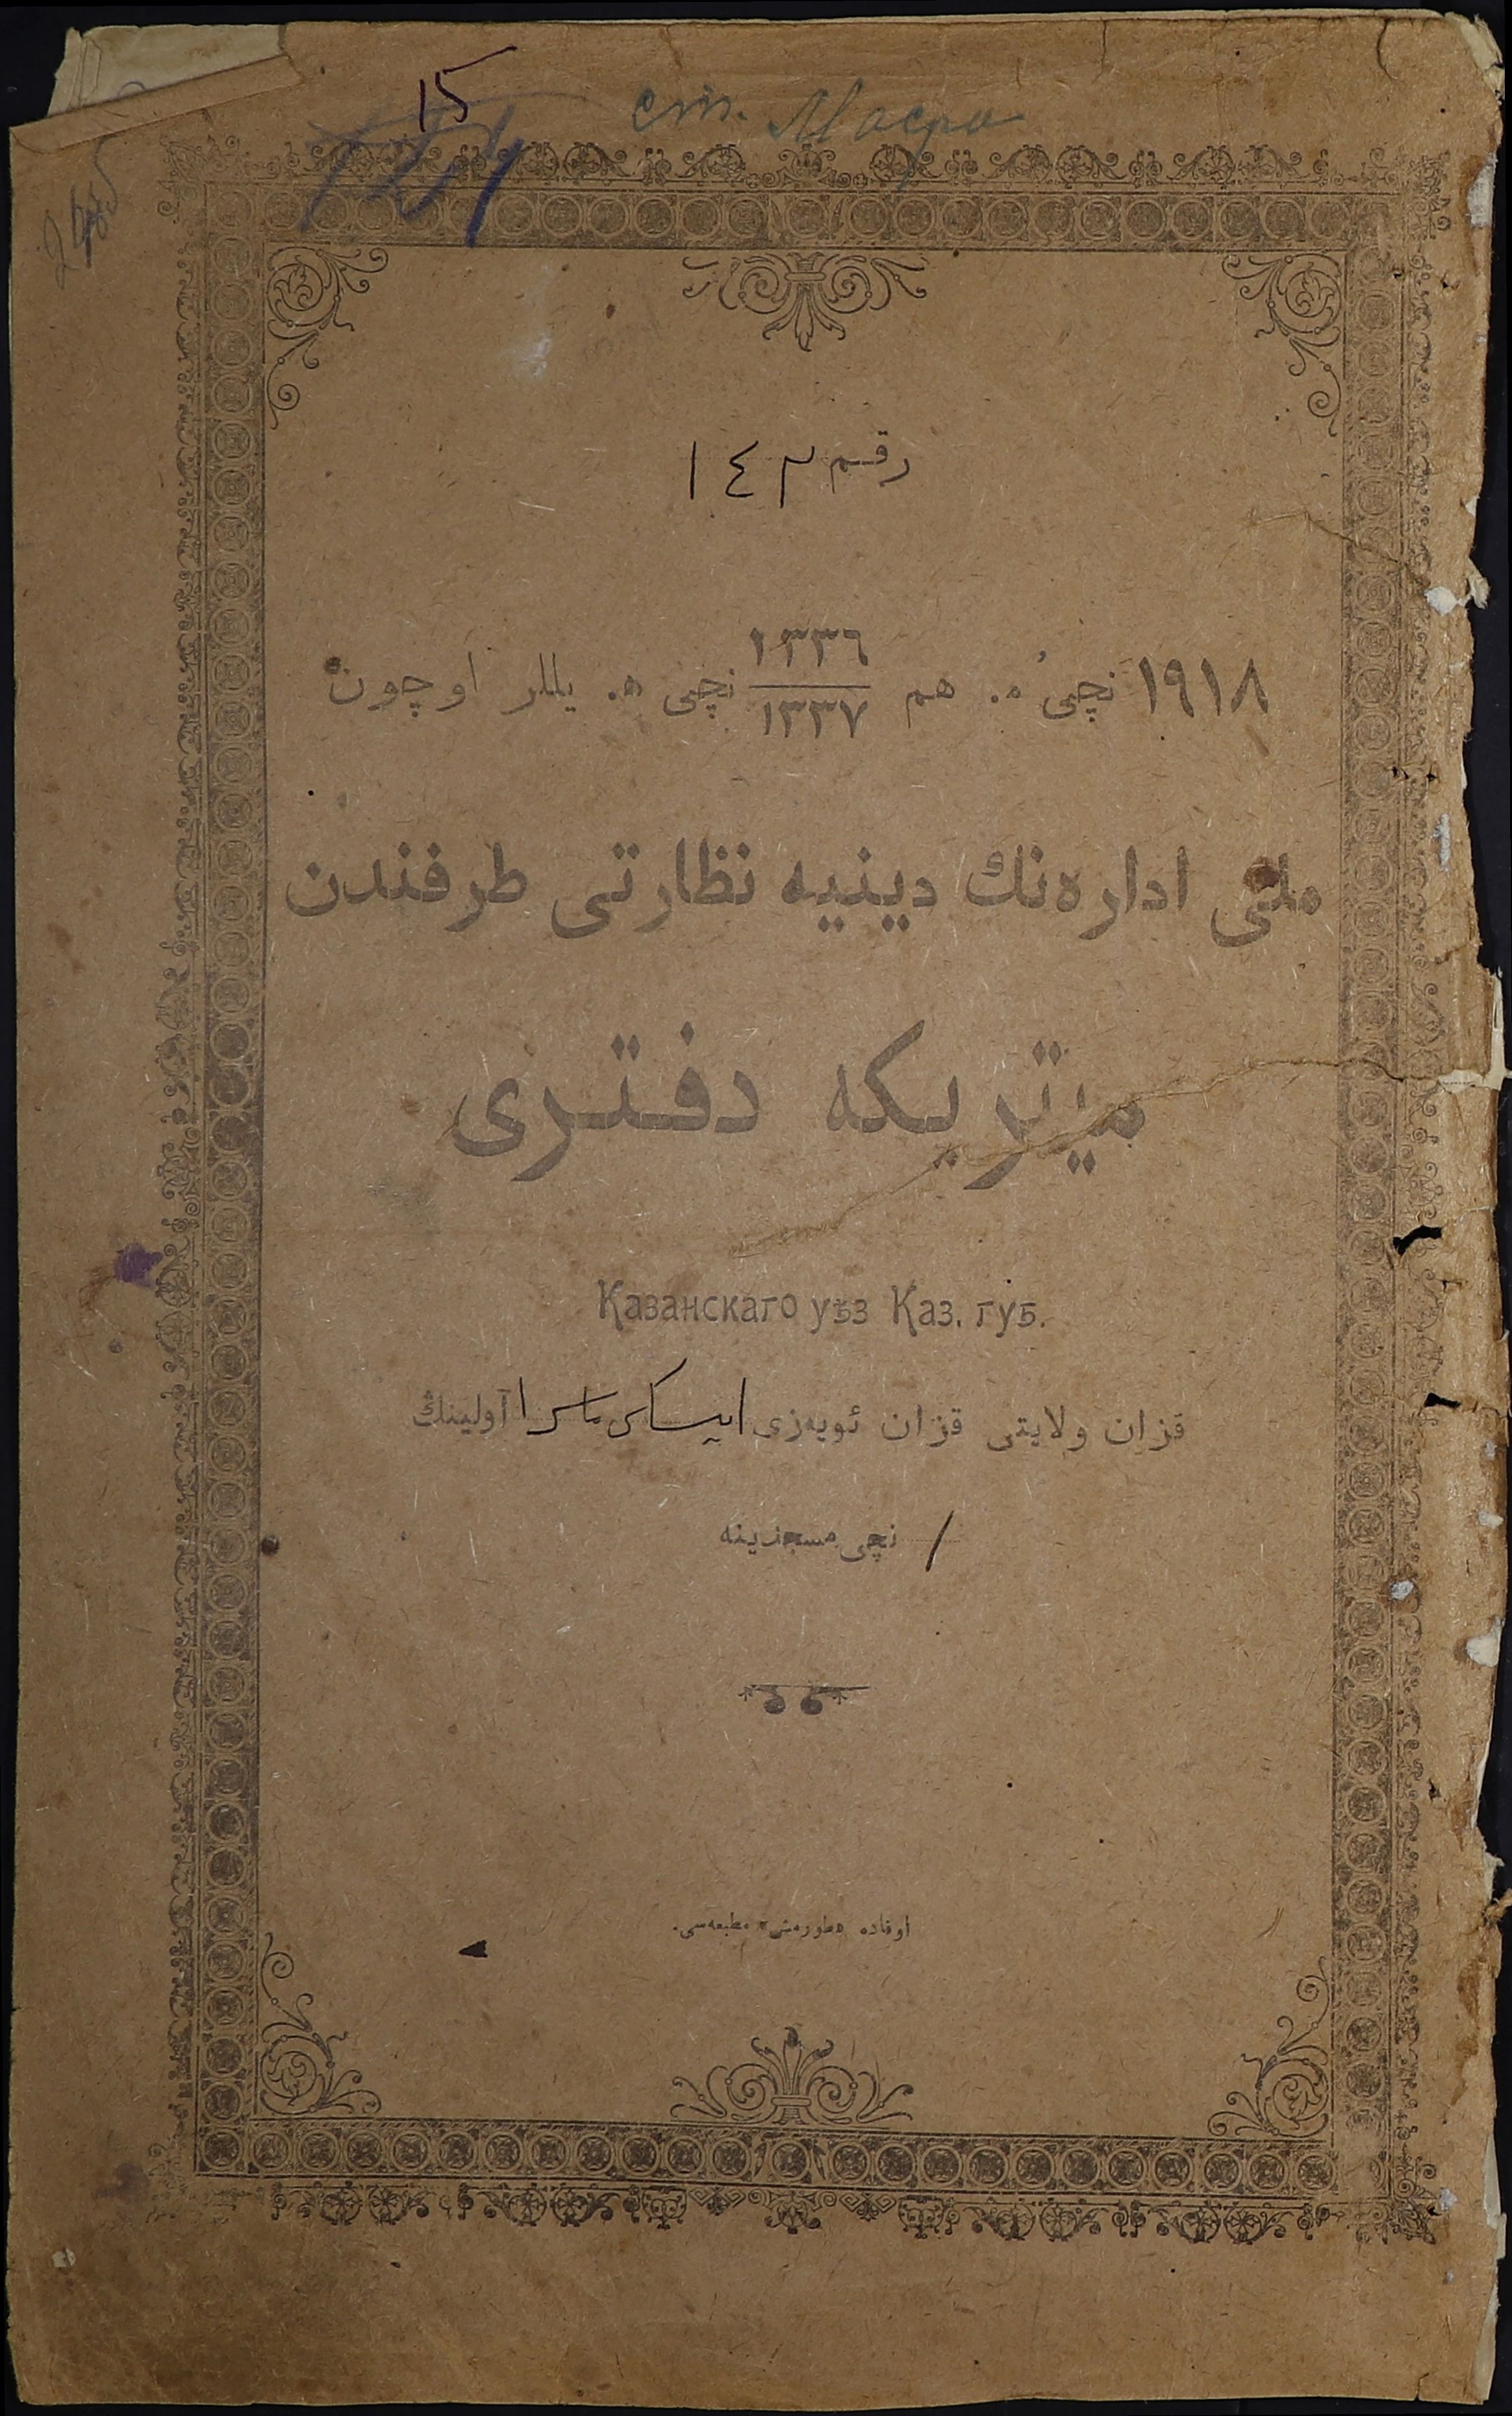 15
ст. Масра
رقم ١٤٢
١٩١٨ نچی م. هم ١٣٣٦/١٣٣٧ نچی ه. یللر اوچون
ملی اداره‌نڭ دینیه نظارتی طرفندن
میتریکه دفتری
Казанскаго уѣз Каз. губ.
قزان ولایتی قزان ئویه‌زی ایسکی ماسرا آولینڭ
١ نچی مسجدینه
اوفاده «طورمش» مطبعه‌سی.